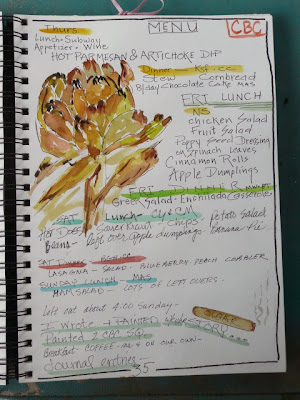 Thurs
MENU
CBC
Lunch - Subway
Appetizer + Wine
HOT PARMESAN & ARTICHOKE DIP
Dinner - KSF CC
Stew Cornbread
B/day Chocolate Cake MAS
FRI LUNCH
NS
chicken Salad
Fruit Salad
Poppy Seed Dressing
on spinach Leaves
Cinnamon Rolls
Apple Dumplings
FRI DINNER
Green Salad - Enchilada Casserole
SAT Lunch - CY + CM
Hot Dogs Sauerkraut - Chips potato salad
Beans - left over apple dumplings - banana - Pie
SAT Dinner
LASAGNA - SALAD - BLUEBERRY, PEACH COBBLER
SUNDAY LUNCH - MAS
HAM SALAD - LOTS OF LEFT OVERS..
Left out about 4:00 Sunday -
QUAKE
I wrote + PAINTED STORY
Painted 2 CBC SQ.
Breakfast - COFFEE - on our own -
Journal entries -
35